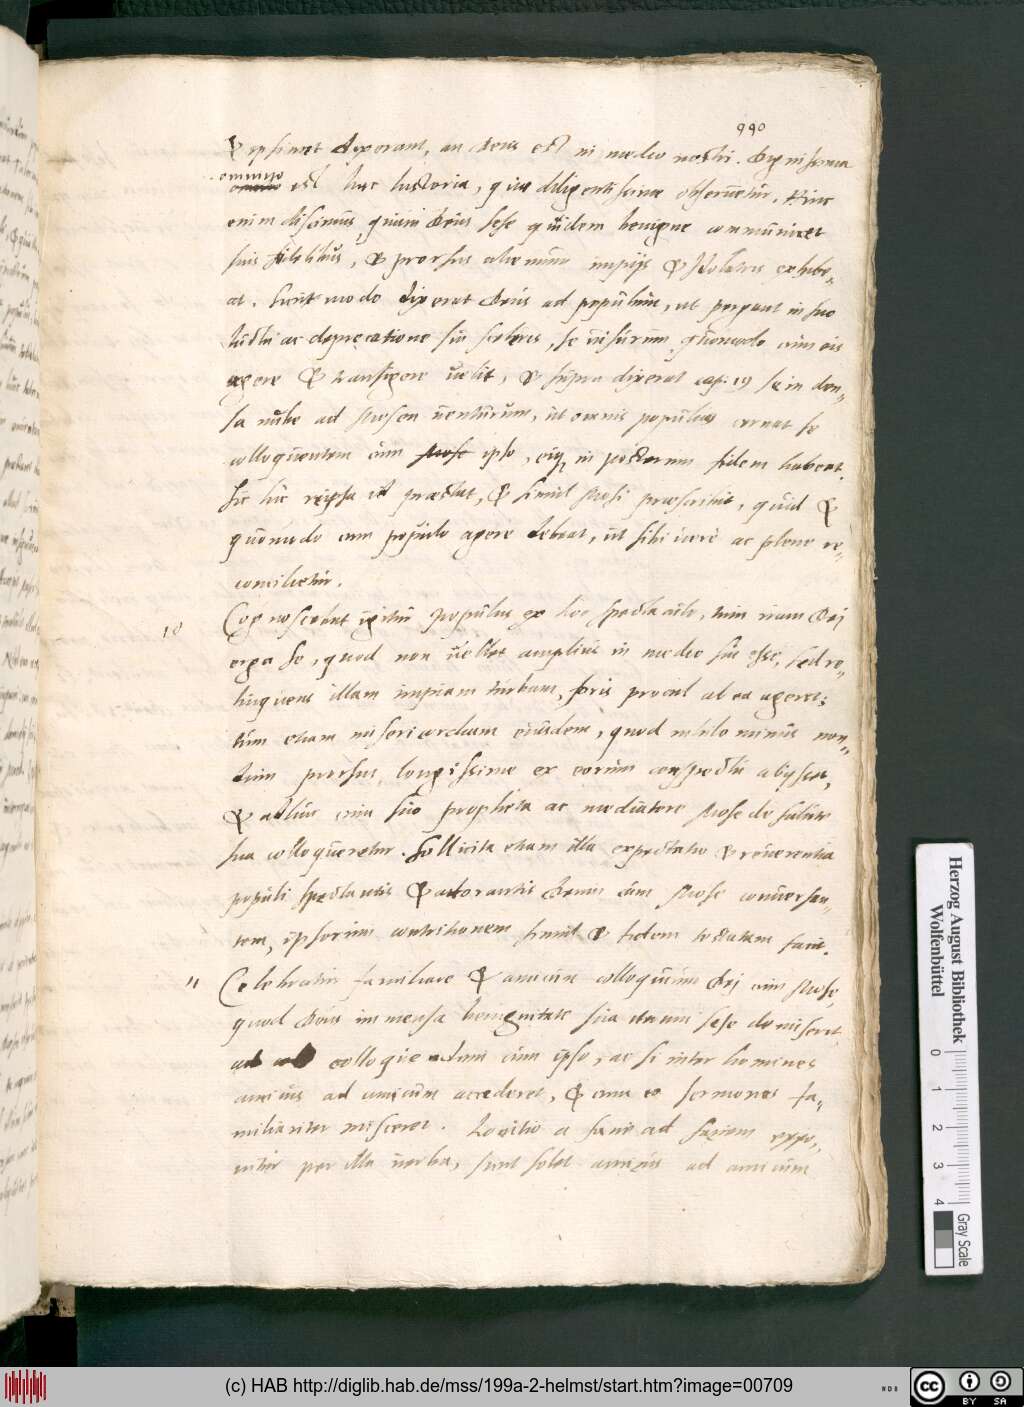 990
& ipsimet dixerant, an Deus est in medio nostri. Dignissima
omnino
est haec historia, quae diligentissime observetur. Hinc
enim discimus, quam Deus sese quidem benigne communicet
suis fidelibus, & prorsus alienum impijs & Idolatris exhibe„
at. Sicut modo dixerat Deus ad populum, ut pergant in suo
luctu ac deprecatione sui sceleris, se visurum, quomodo cum eis
agere & transigere velit, & supra dixerat cap. 19 se in den„
sa nube ad Mosen venturum, ut omnis populus cernat se
colloquentem cum Mose ipso, eiq in posterum fidem habeat.
Sic hic reipsa id praestat, & simul Mosi praescribit, quid &
quomodo cum populo agere debeat, ut sibi vere ac plene re„
concilietur.
10 Cognoscebat igitur populus ex hoc spectaculo, tum iram Dei
erga se, quod non vellet amplius in medio sui esse, sed re„
linquens illam impiam turbam, foris procul ab ea ageret;
tum etiam misericordiam eiusdem, quod nihilominus non„
dum prorsus longissime ex eorum conspectu abijsset,
& adhuc cum suo propheta ac mediatore Mose de salute
sua colloqueretur. Sollicita etiam illa expectatio & reverentia
populi spectantis & adorantis Deum cum Mose conversan„
tem, ipsorum contritionem simul & fidem testatam facit.
11 Celebratur familiare & amicum colloquium Dei cum Mose,
quod Deus immensa benignitate sua itanni sese demiserit
ad colloquendum cum ipso, ac si inter homines
amicus ad amicum accederet, & cum eo sermones fa„
miliariter misceret. Locutio a facie ad faciem expo„
nitur per illa verba, sicut solet amicus ad amicum
Herzog August Bibliothek
Wolfenbüttel
0 1 2 3 4
Gray Scale
(c) HAB http://diglib.hab.de/mss/199a-2-helmst/start.htm?image=00709
cc BY SA